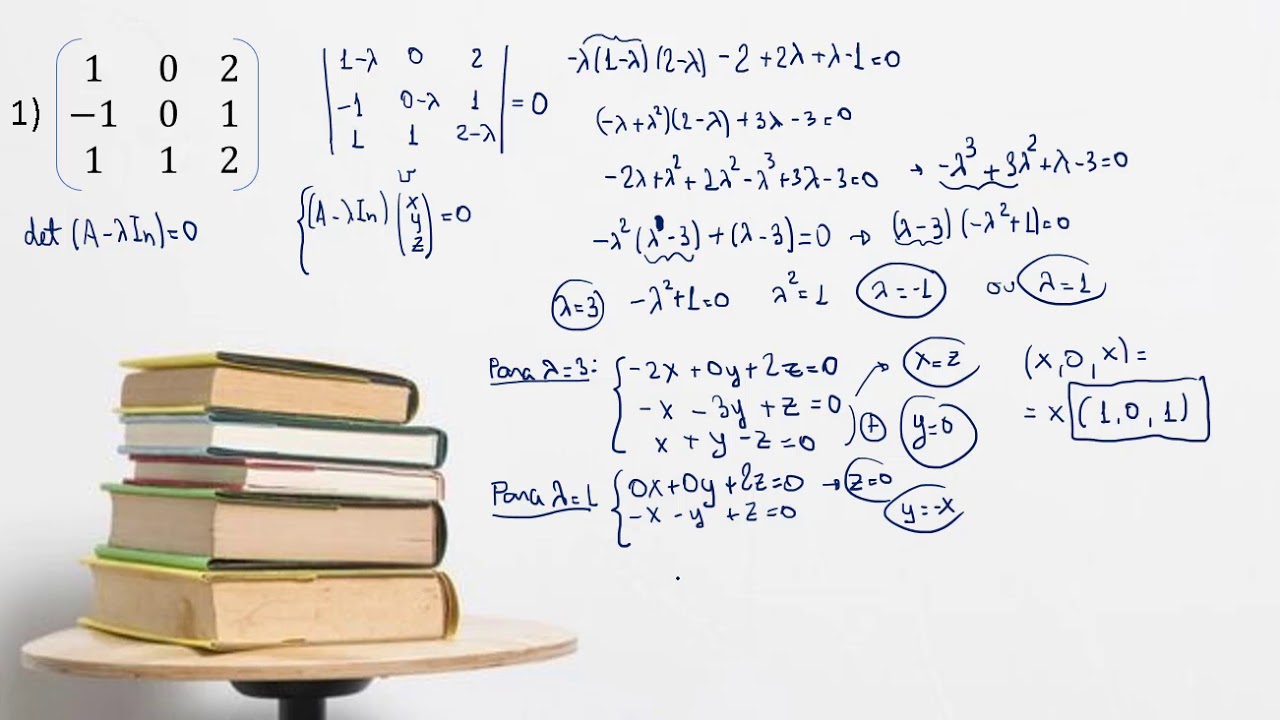 1)
1 0 2
−1 0 1
1 1 2
det (A-λIn)=0
1-λ 0 2
-1 0-λ 1 = 0
1 1 2-λ
{(A-λIn) (x y z) = 0
-λ(1-λ)(2-λ) - 2 + 2λ + λ - 1 = 0
(-λ+λ²)(2-λ) + 3λ - 3 = 0
-2λ + λ² + 2λ² - λ³ + 3λ - 3 = 0 → -λ³ + 3λ² + λ - 3 = 0
-λ²(λ - 3) + (λ - 3) = 0 → (λ - 3)(-λ² + 1) = 0
λ=3 -λ²+1=0 λ²=1 λ=-1 ou λ=1
Para λ=3: { -2x + 0y + 2z = 0 → x=z (x,0,x) =
-x - 3y + z = 0 = x (1,0,1)
x + y - z = 0 + y=0
Para λ=1 { 0x + 0y + 2z = 0 → z=0
-x - y + z = 0 y=-x